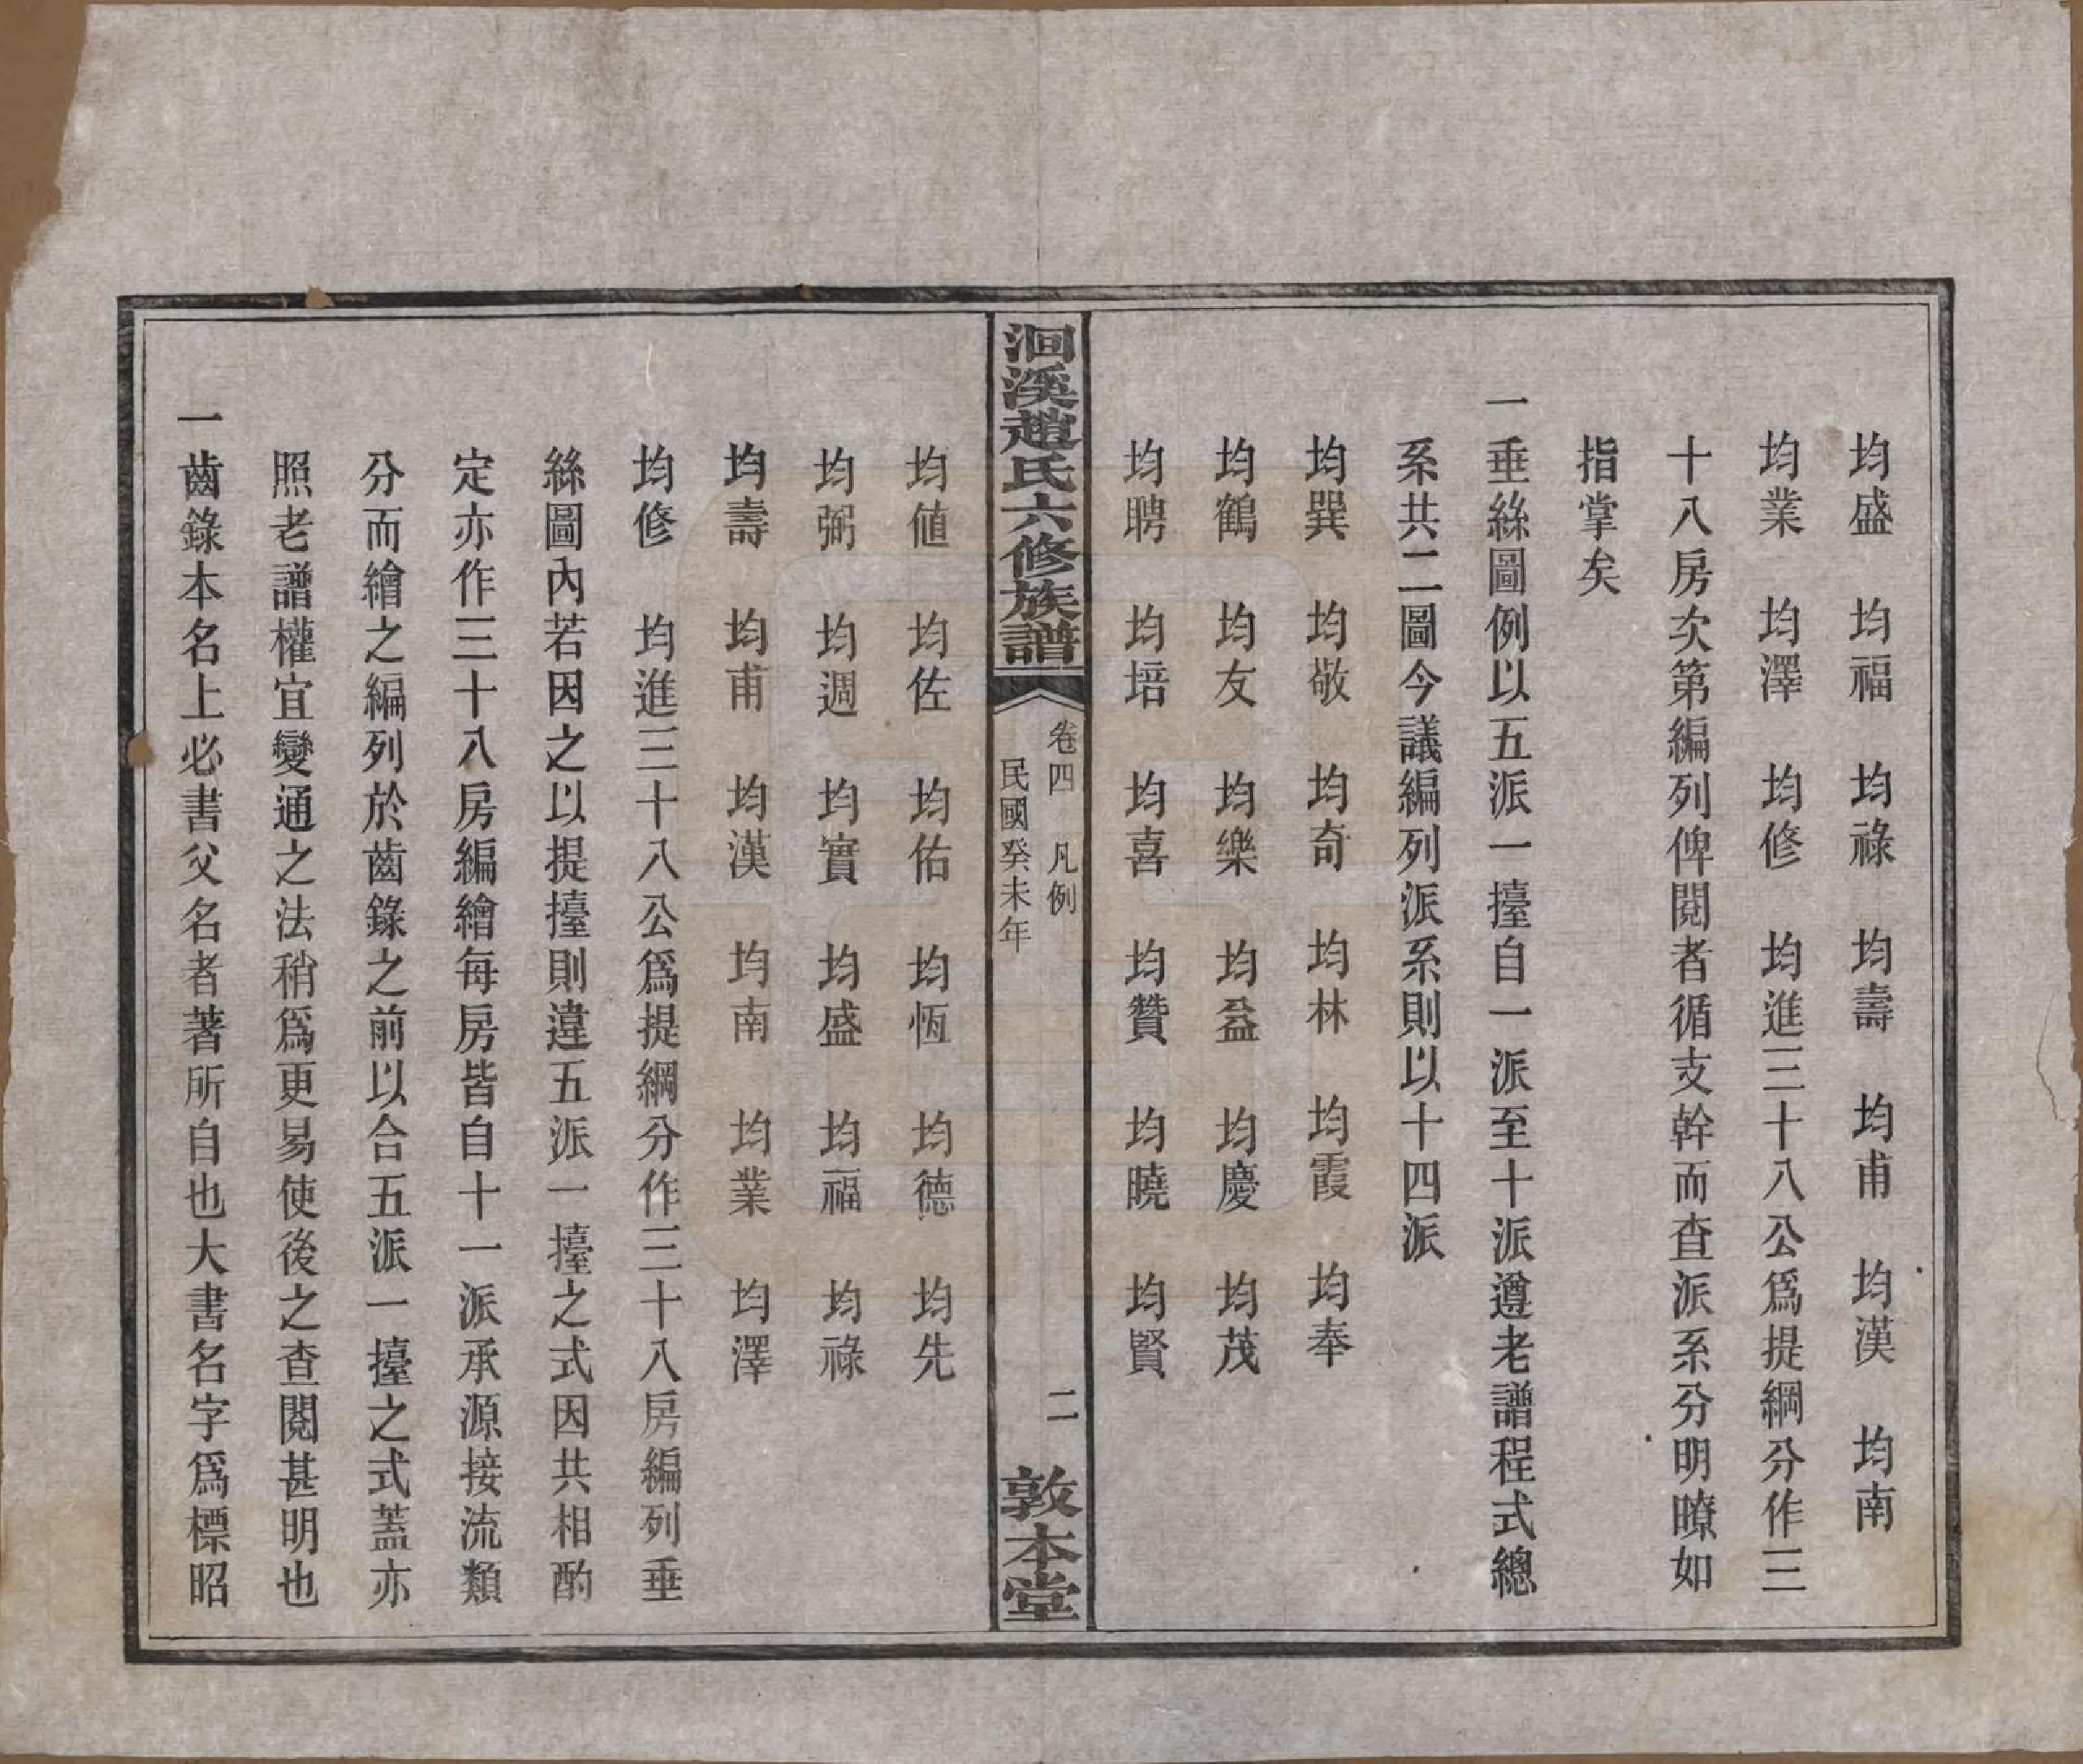 均盛　均福　均祿　均壽　均甫　均漢　均南
均業　均澤　均修　均進三十八公爲提綱分作三
十八房次第編列俾閱者循支幹而查派系分明暸如
指掌矣
一垂絲圖例以五派一擡自一派至十派遵老譜程式總
系共二圖今議編列派系則以十四派
均巽　均敬　均奇　均林　均霞　均奉
均鶴　均友　均樂　均益　均慶　均茂
均聘　均培　均喜　均贊　均曉　均賢
洄溪趙氏六修族譜
卷四　凡例
民國癸未年
二
敦本堂
均値　均佐　均佑　均恆　均德　均先
均弼　均週　均實　均盛　均福　均祿
均壽　均甫　均漢　均南　均業　均澤
均修　均進三十八公爲提綱分作三十八房編列垂
絲圖內若因之以提擡則違五派一擡之式因共相酌
定亦作三十八房編繪每房皆自十一派承源接流類
分而繪之編列於齒錄之前以合五派一擡之式蓋亦
照老譜權宜變通之法稍爲更易使後之查閱甚明也
一齒錄本名上必書父名者著所自也大書名字爲標昭